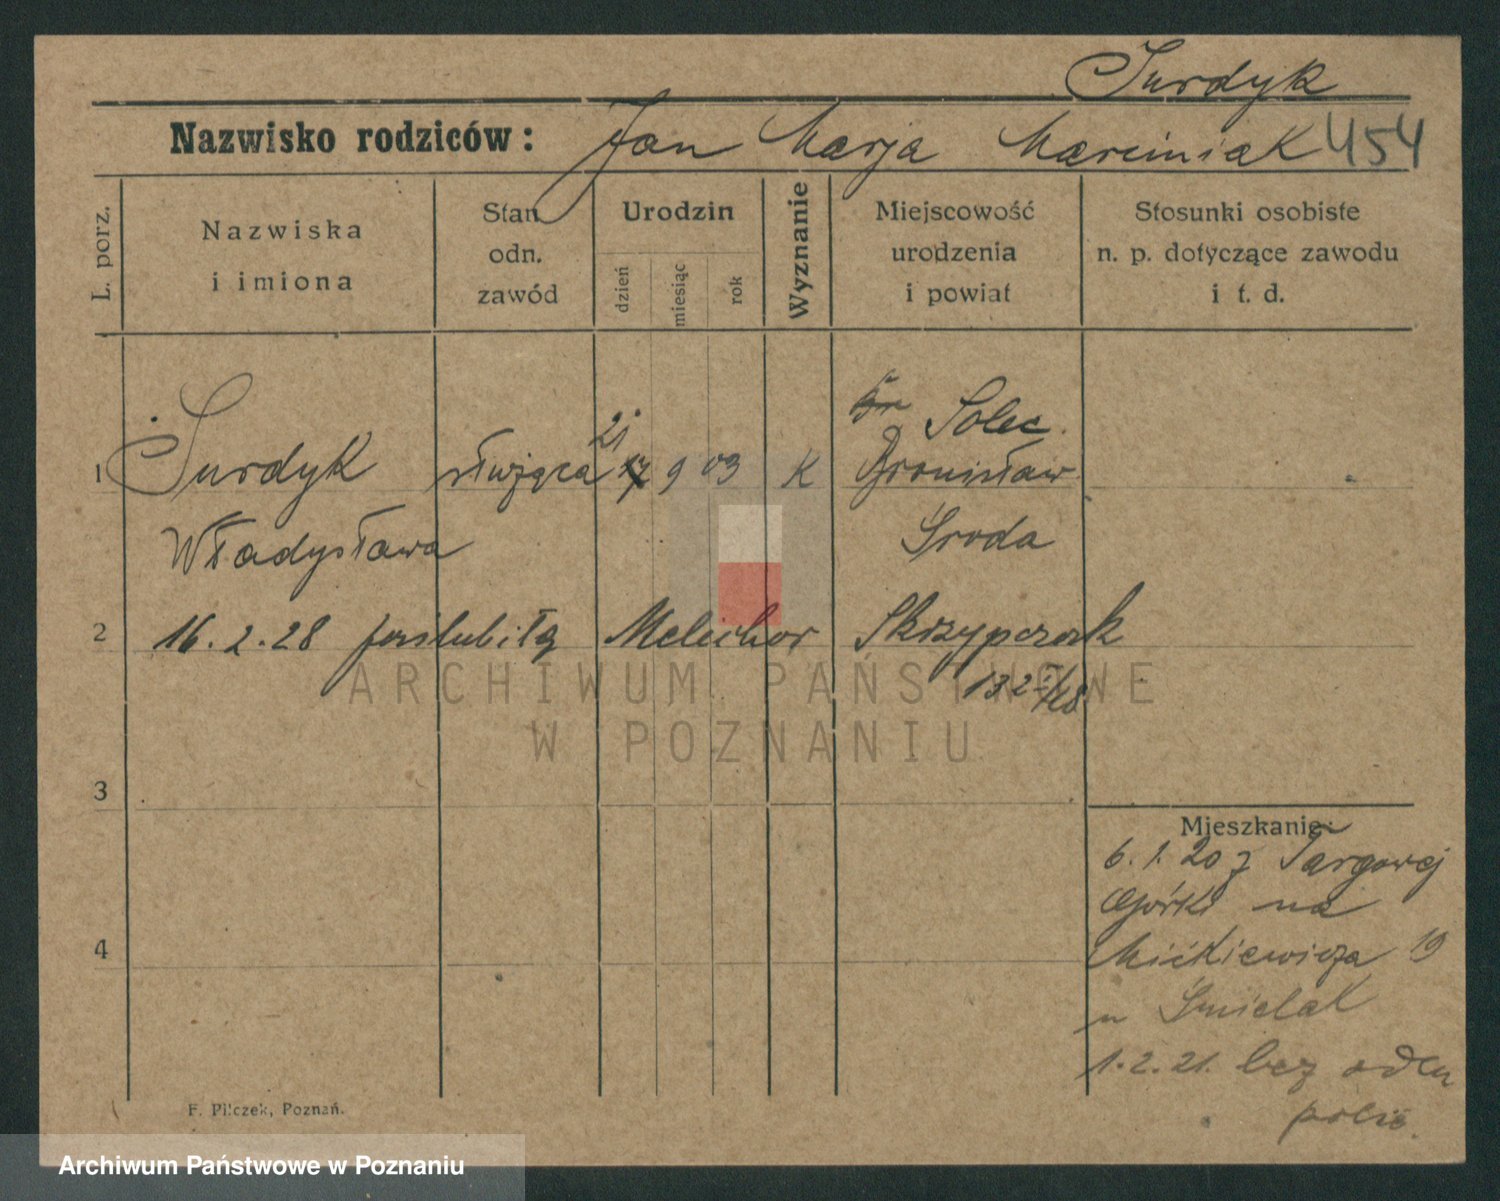 Surdyk
Nazwisko rodziców: Jan Marja Marciniak 454
L. porz.
Nazwiska
i imiona
Stan
odn.
zawód
Urodzin
dzień
miesiąc
rok
Wyznanie
Miejscowość
urodzenia
i powiat
Stosunki osobiste
n. p. dotyczące zawodu
i t. d.
Solec
21
1 Surdyk służąca 17 9 03 K Bronisław
Władysława Środa
2 16.2.28 poślubiła Melchor Skrzypczak
132
3
Mieszkanie:
6.1.20 z Targowej
Górki na
4
Mickiewicza 19
u Śmielak
1.2.21. bez
F. Pilczek, Poznań.
ARCHIWUM PAŃSTWOWE
W POZNANIU
Archiwum Państwowe w Poznaniu